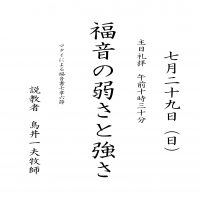 七月二十九日（日）
主日礼拝 午前十時三十分
福音の弱さと強さ
マタイによる福音書七章六節
説教者 鳥井一夫牧師